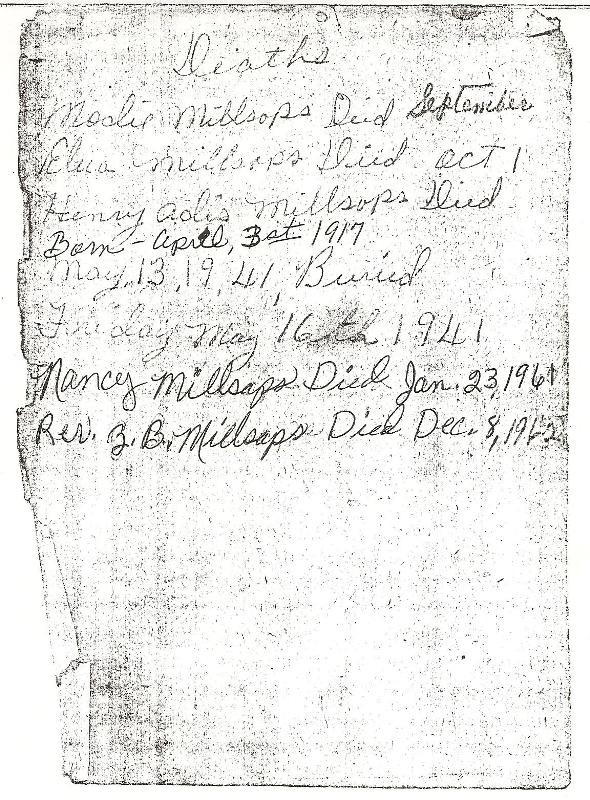 Deaths
Modie Millsops Died September
Elva Millsops Died oct 1
Henry Adis Millsops Died
Born - April, 3st 1917
May, 13, 19, 41, Buried
Friday May 16th 1941
Nancy Millsaps Died Jan. 23, 1961
Rev. Z. B. Millsaps Died Dec. 8, 1962